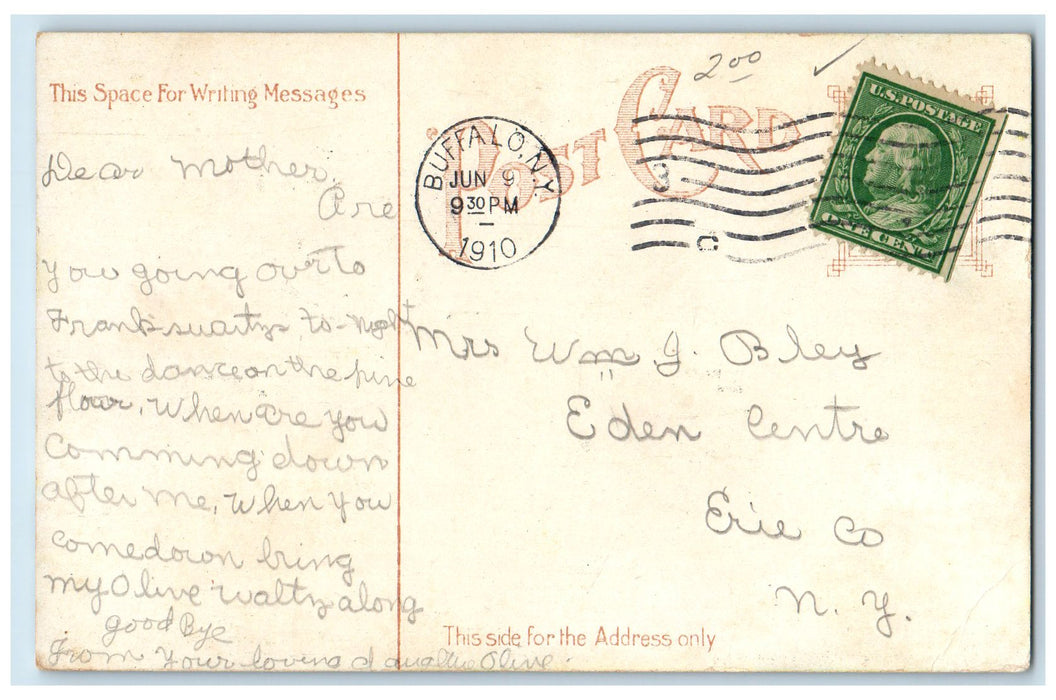 This Space For Writing Messages
Dear Mother,
Are
you going over to
Frank swartzs to-night
to the dance on the pine
flour, When are you
Comming down
after me, When you
comedown bring
my Olive waltz along
good Bye
From Your loving daughter Olive.
POST CARD
2 00
BUFFALO, N.Y.
JUN 9
9 30 PM
1910
3
C
U.S. POSTAGE
ONE CENT
Mrs Wm J. Bley
Eden Centre
Erie Co
N. Y.
This side for the Address only